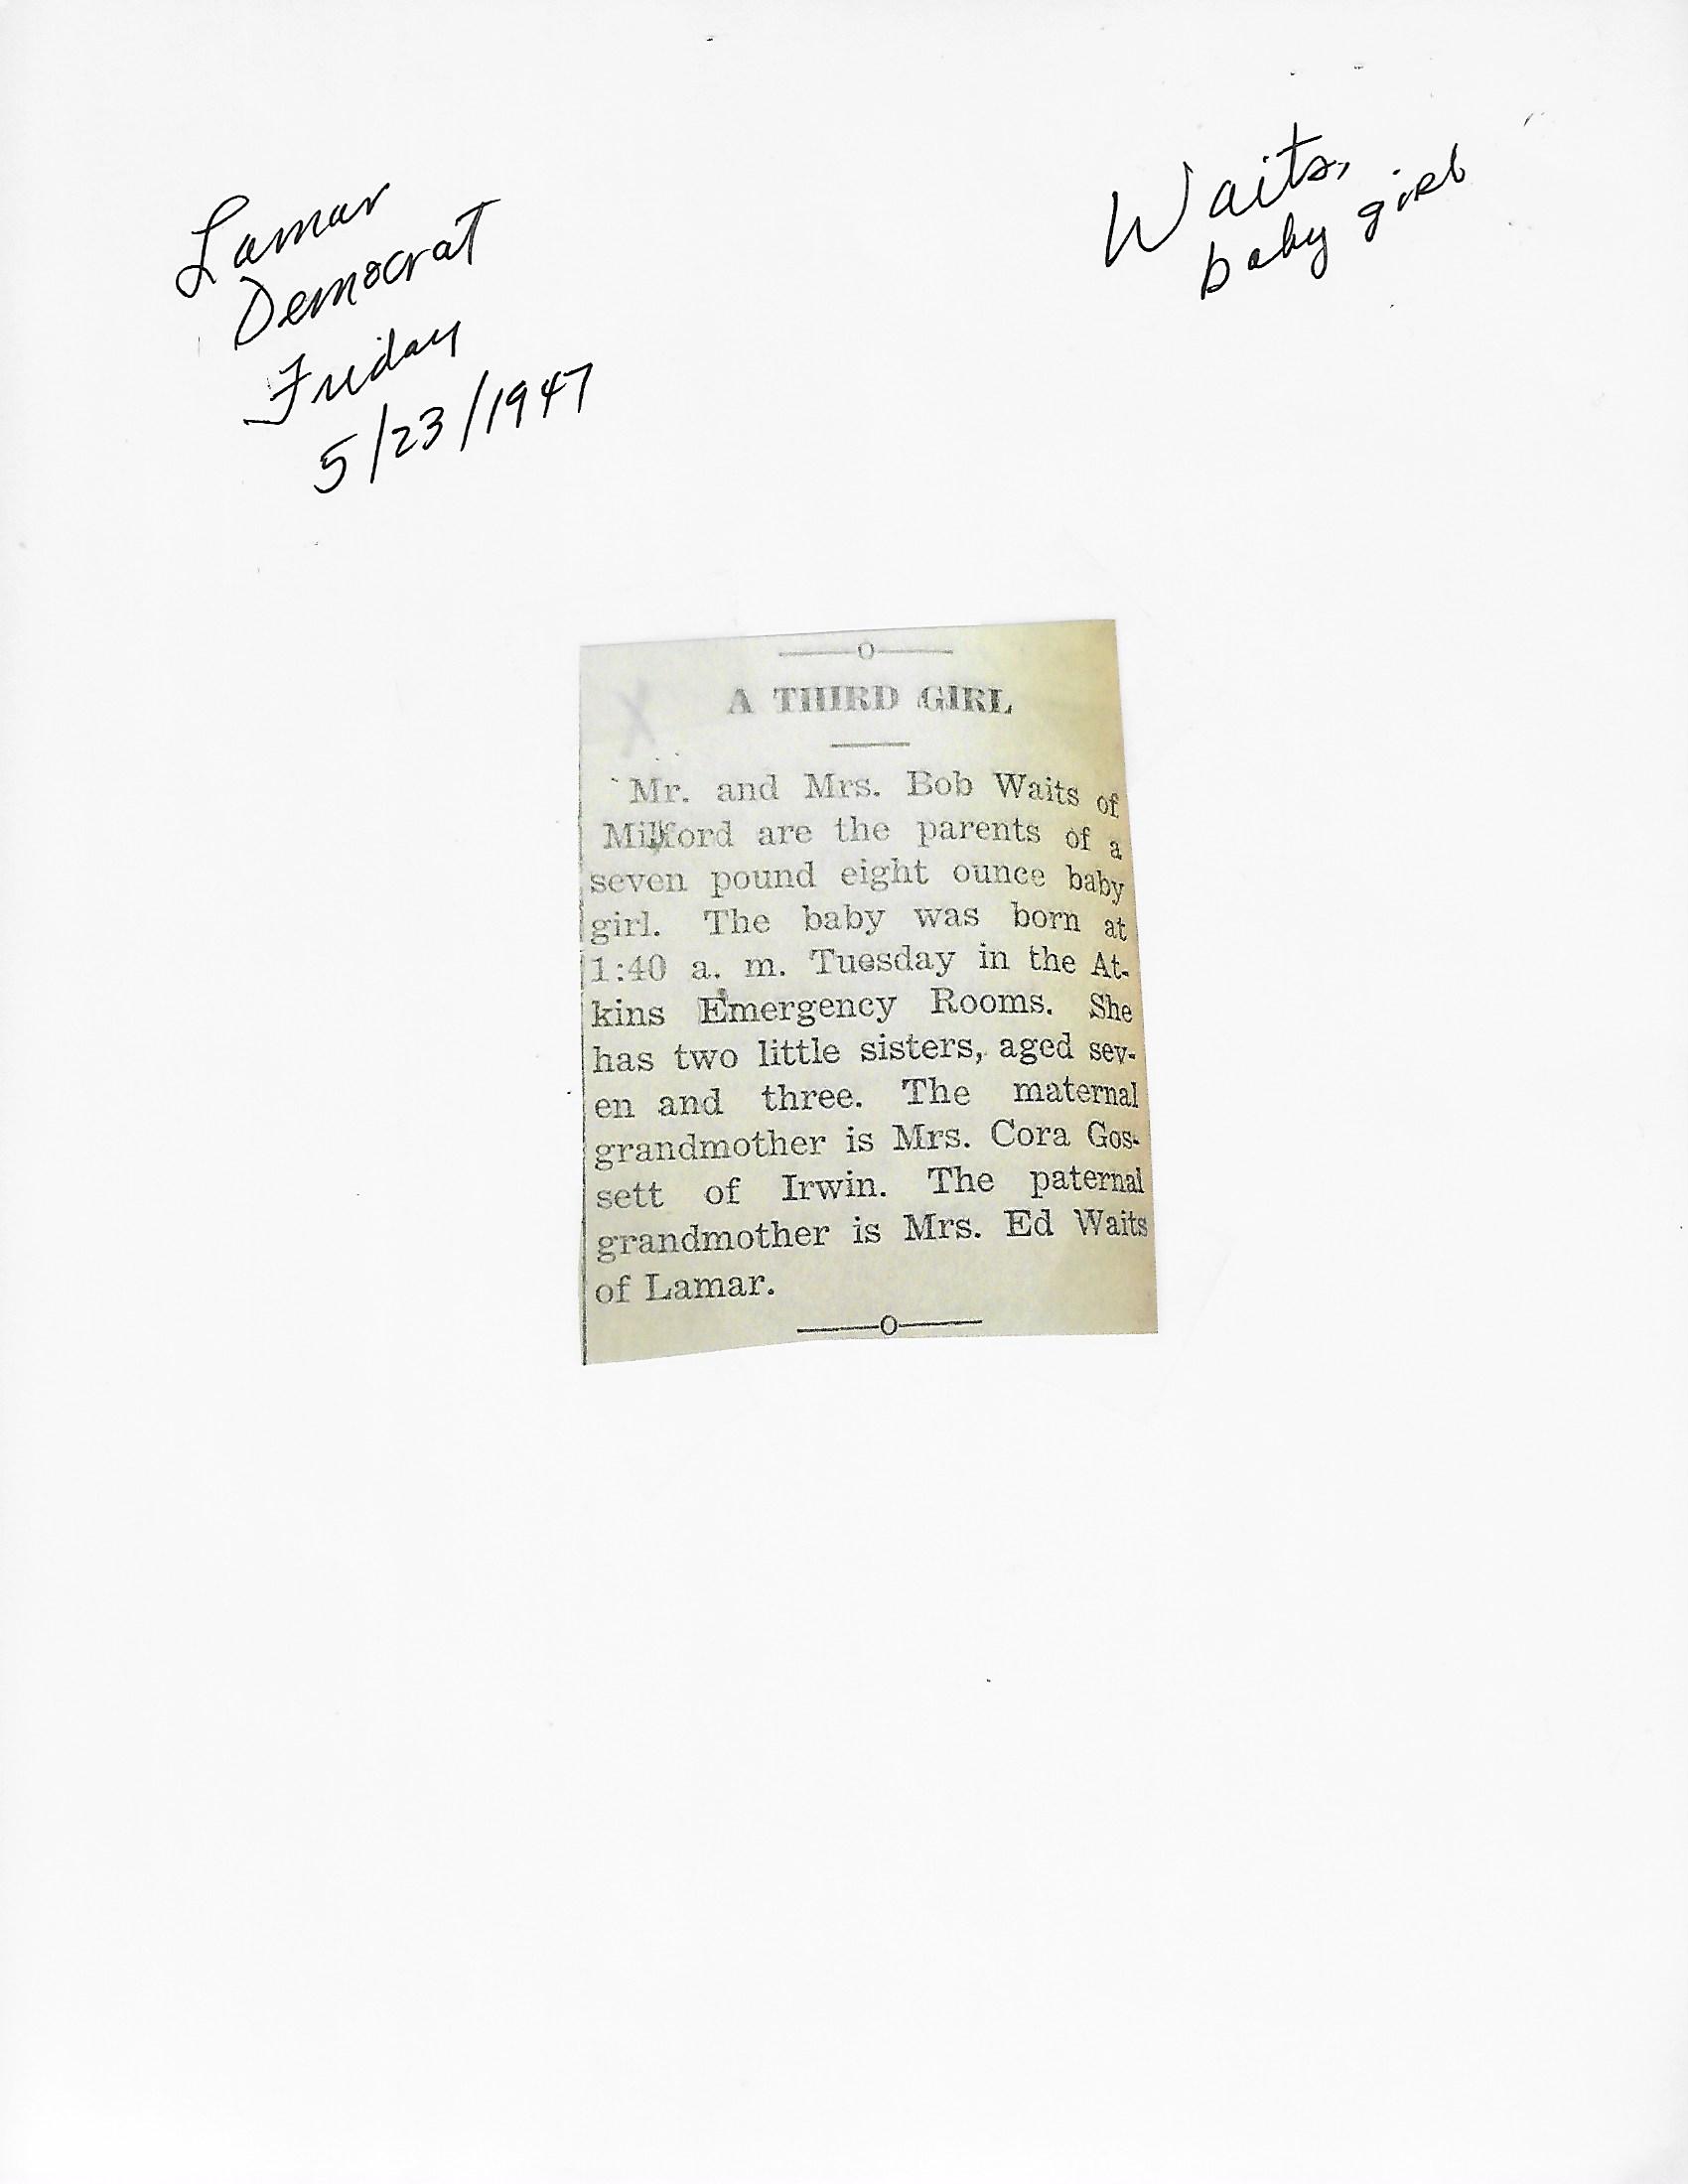 Lamar
Democrat
Friday
5/23/1947
Waits,
baby girl
A THIRD GIRL
Mr. and Mrs. Bob Waits of
Milford are the parents of a
seven pound eight ounce baby
girl. The baby was born at
1:40 a. m. Tuesday in the At-
kins Emergency Rooms. She
has two little sisters, aged sev-
en and three. The maternal
grandmother is Mrs. Cora Gos-
sett of Irwin. The paternal
grandmother is Mrs. Ed Waits
of Lamar.